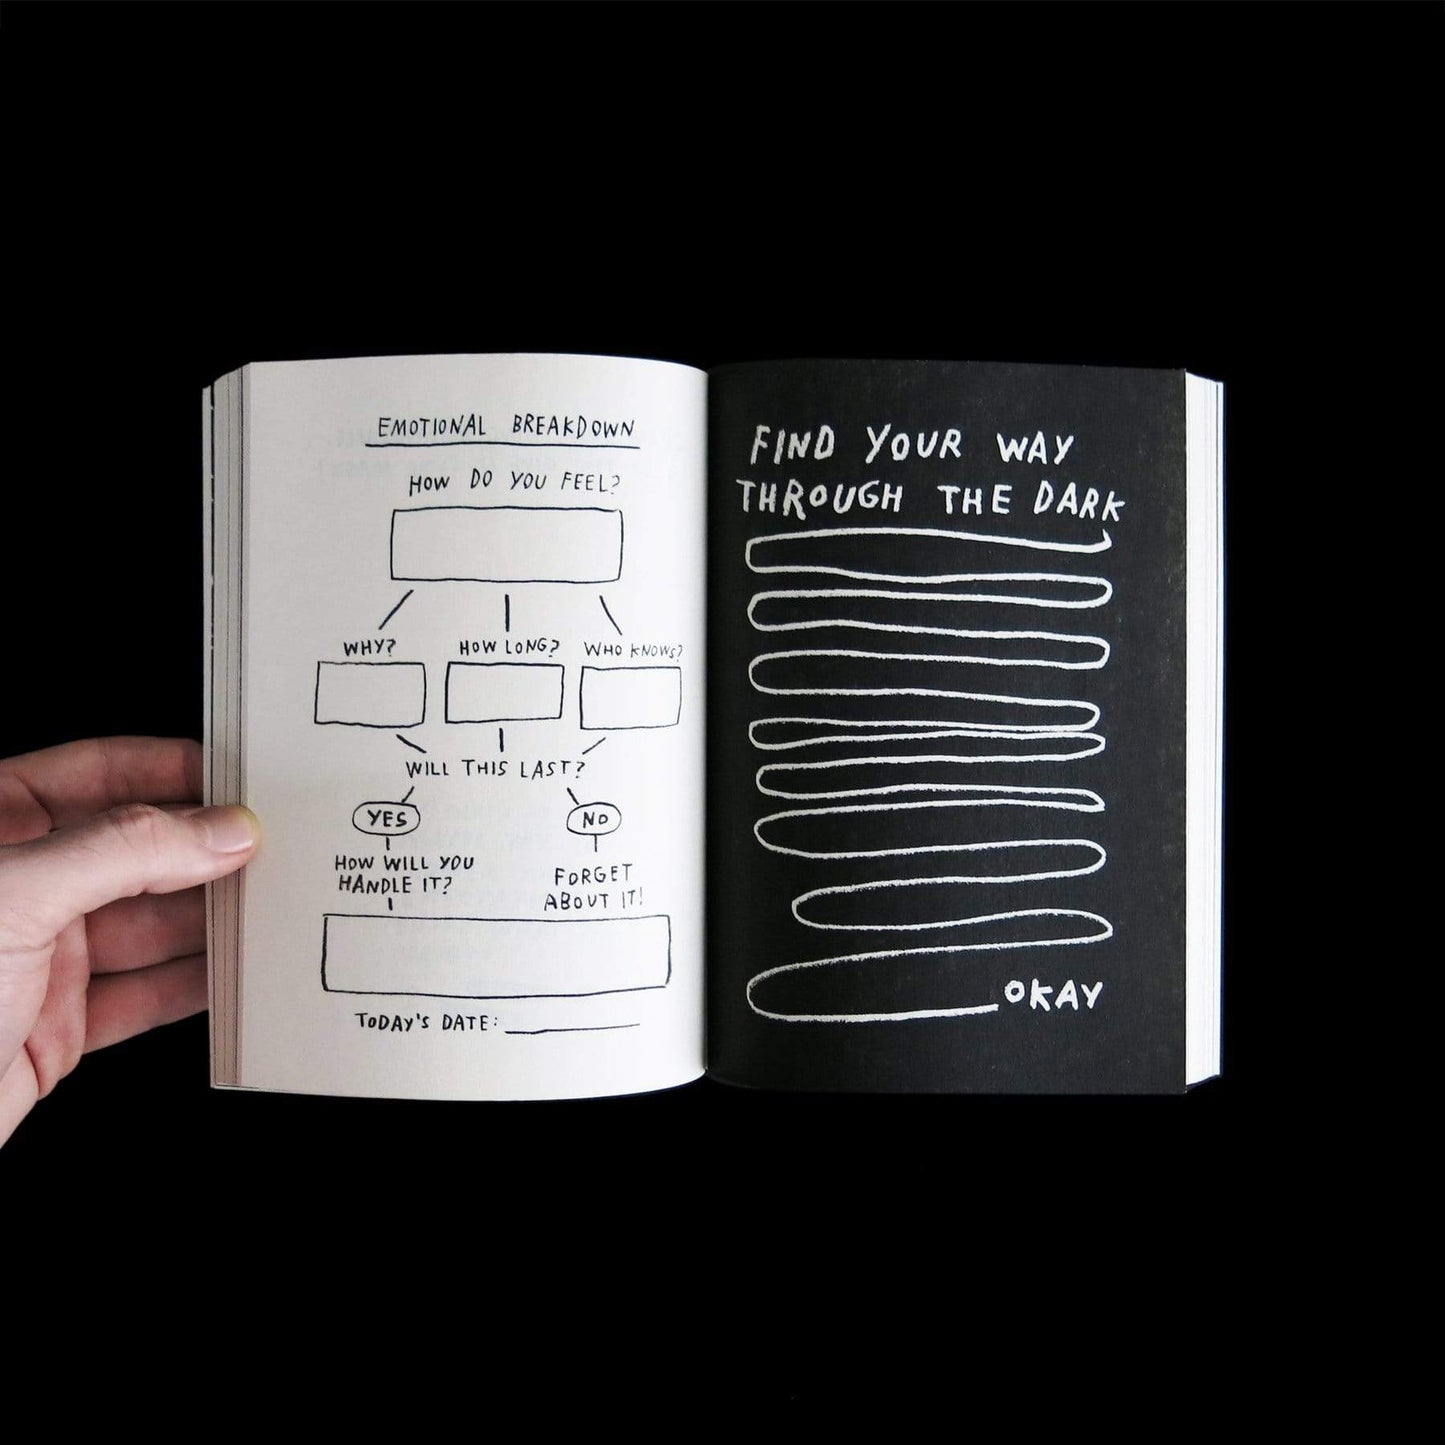 EMOTIONAL BREAKDOWN
HOW DO YOU FEEL?
WHY?
HOW LONG?
WHO KNOWS?
WILL THIS LAST?
YES
NO
HOW WILL YOU
HANDLE IT?
FORGET
ABOUT IT!
TODAY'S DATE:
FIND YOUR WAY
THROUGH THE DARK
OKAY